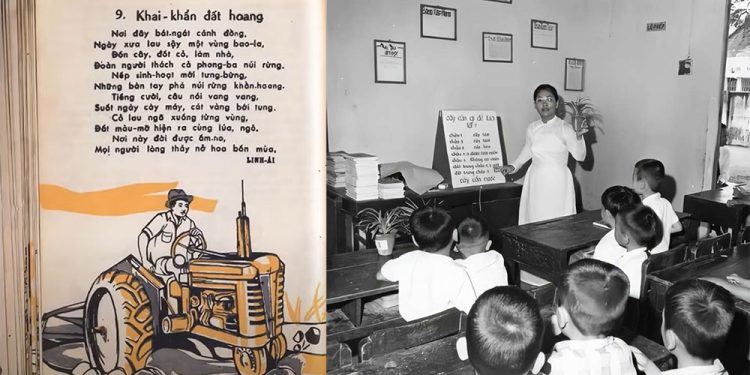 9. Khai-khẩn đất hoang
Nơi đây bát-ngát cánh đồng,
Ngày xưa lau sậy một vùng bao-la,
Đốn cây, đốt cỏ, làm nhà,
Đoàn người thách cả phong-ba núi rừng.
Nếp sinh-hoạt mới tưng-bừng,
Những bàn tay phá núi rừng khẩn-hoang.
Tiếng cười, câu nói vang vang,
Suốt ngày cày máy, cát vàng bới tung.
Cỏ lau ngã xuống từng vùng,
Đất màu-mỡ hiện ra cùng lúa, ngô.
Nơi này đời được ấm-no,
Mọi người lòng thấy nở hoa bốn mùa,
LINH-ÁI
Cây cần gì để tươi
tốt ?
chậu 1 cây tươi
chậu 2
chậu 3
cây cần nước